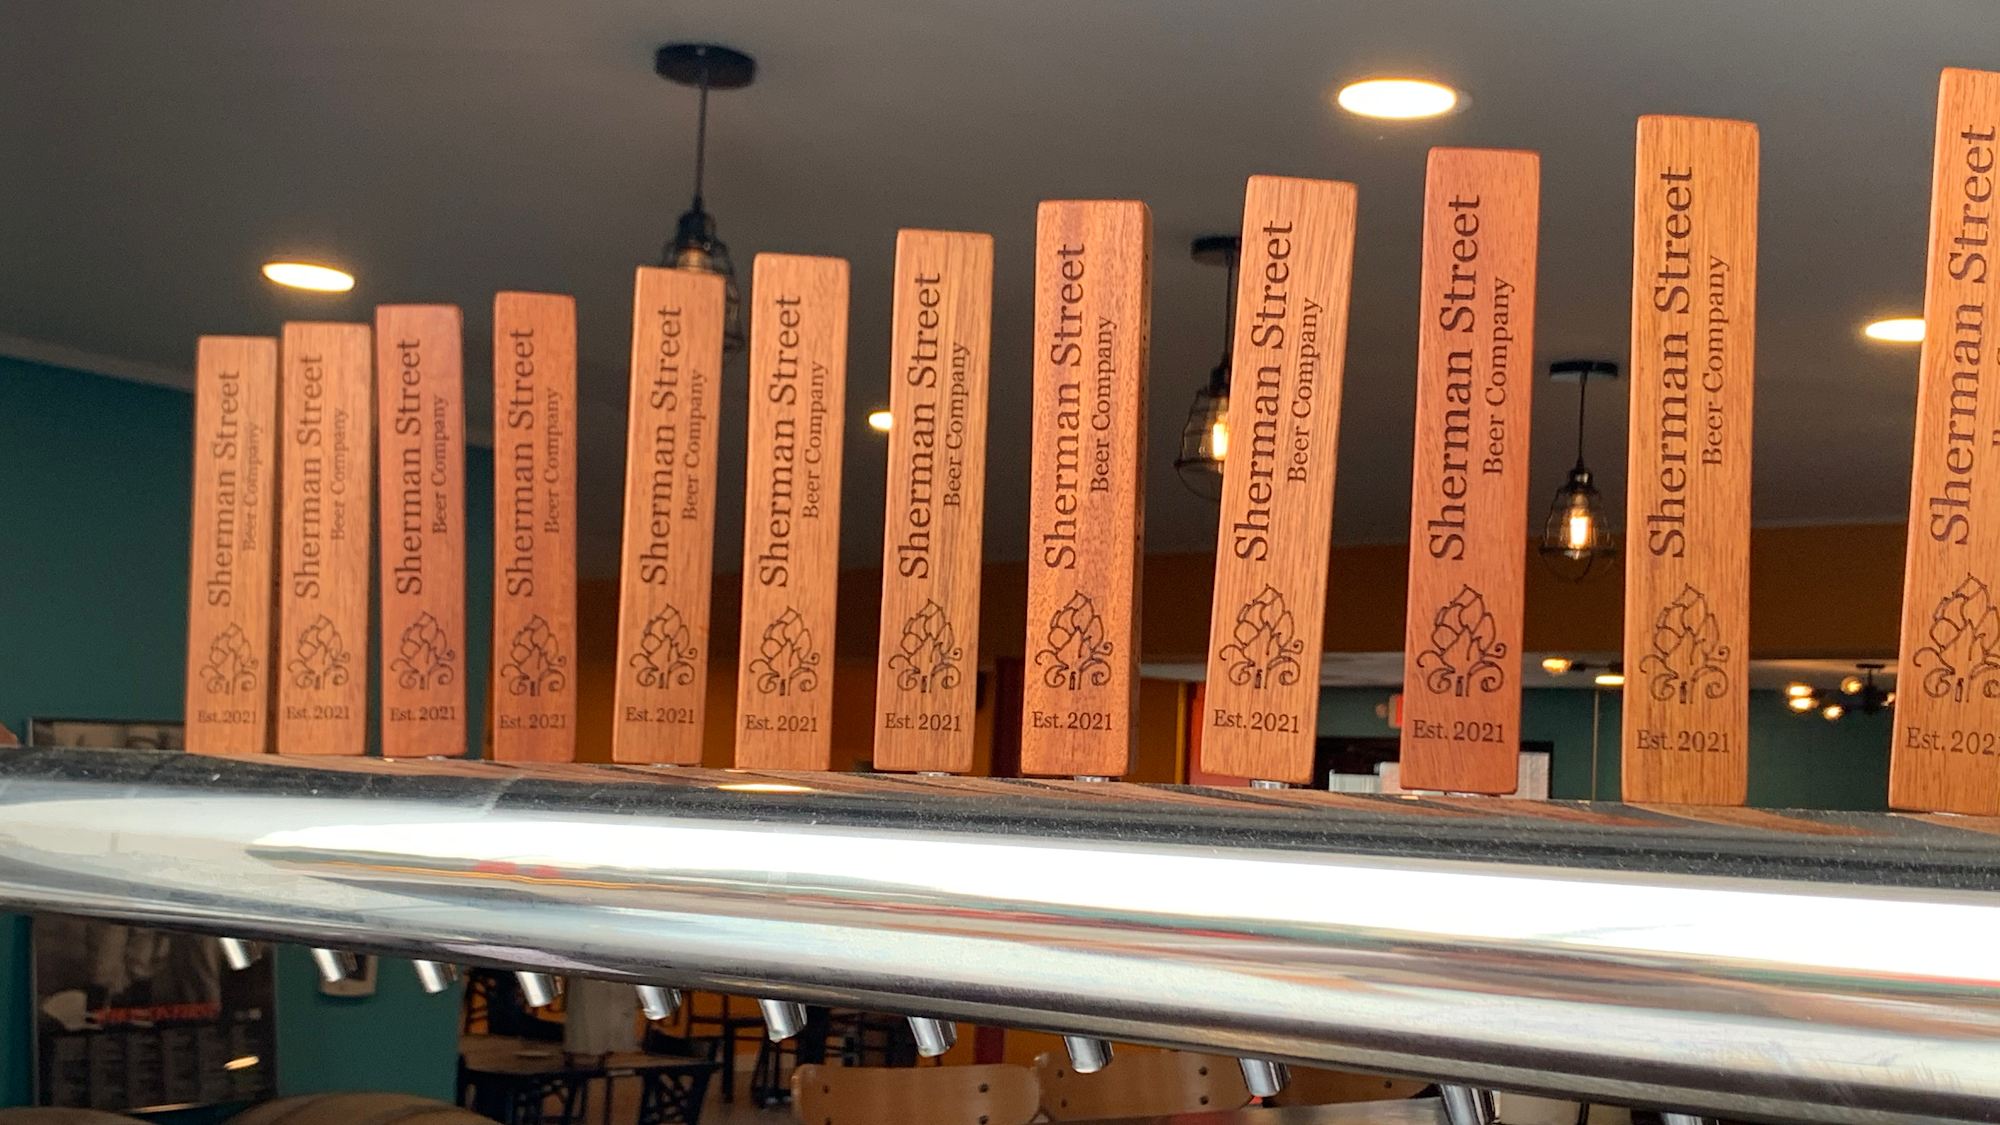 Sherman Street
Beer Company
Est. 2021
Sherman Street
Beer Company
Est. 2021
Sherman Street
Beer Company
Est. 2021
Sherman Street
Beer Company
Est. 2021
Sherman Street
Beer Company
Est. 2021
Sherman Street
Beer Company
Est. 2021
Sherman Street
Beer Company
Est. 2021
Sherman Street
Beer Company
Est. 2021
Sherman Street
Beer Company
Est. 2021
Sherman Street
Beer Company
Est. 2021
Sherman Street
Beer Company
Est. 2021
Sherman Street
Est. 202